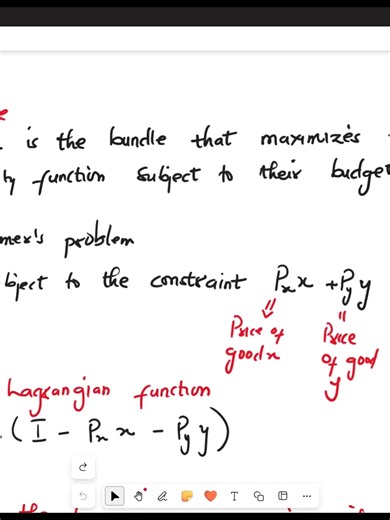 is the bundle that maximizes
function subject to their budget
problem
to the constraint Pₓx + Pᵧy
Price of good x
Price of good y
Lagrangian function
(I - Pₓx - Pᵧy)
T